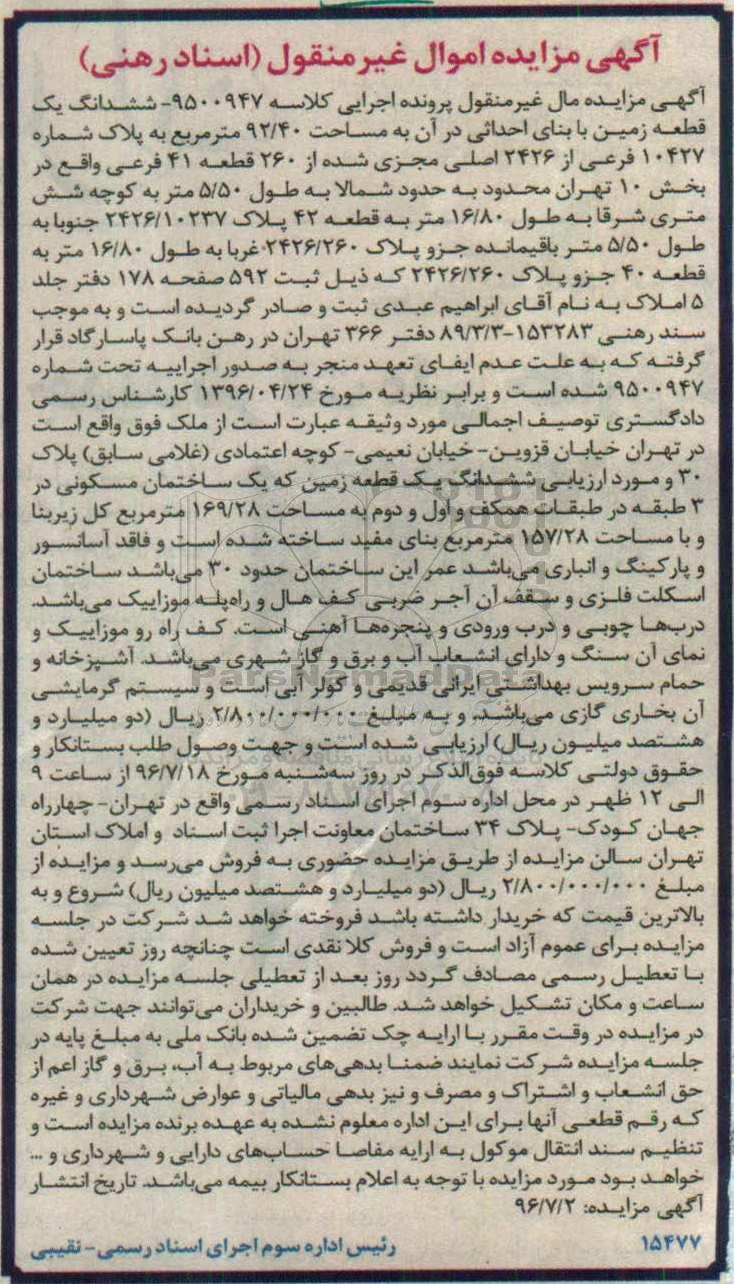 آگهی مزایده اموال غیرمنقول (اسناد رهنی)
آگهی مزایده مال غیرمنقول پرونده اجرایی کلاسه ۹۵۰۰۹۴۷- ششدانگ یک
قطعه زمین با بنای احداثی در آن به مساحت ۹۲/۴۰ مترمربع به پلاک شماره
۱۰۴۲۷ فرعی از ۲۴۲۶ اصلی مجزی شده از ۲۶۰ قطعه ۴۱ فرعی واقع در
بخش ۱۰ تهران محدود به حدود شمالا به طول ۵/۵۰ متر به کوچه شش
متری شرقا به طول ۱۶/۸۰ متر به قطعه ۴۲ پلاک ۲۴۲۶/۱۰۲۳۷ جنوبا به
طول ۵/۵۰ متر باقیمانده جزو پلاک ۲۴۲۶/۲۶۰ غربا به طول ۱۶/۸۰ متر به
قطعه ۴۰ جزو پلاک ۲۴۲۶/۲۶۰ که ذیل ثبت ۵۹۲ صفحه ۱۷۸ دفتر جلد
۵ املاک به نام آقای ابراهیم عبدی ثبت و صادر گردیده است و به موجب
سند رهنی ۱۵۳۲۸۳-۸۹/۳/۳ دفتر ۳۶۶ تهران در رهن بانک پاسارگاد قرار
گرفته که به علت عدم ایفای تعهد منجر به صدور اجراییه تحت شماره
۹۵۰۰۹۴۷ شده است و برابر نظریه مورخ ۱۳۹۶/۰۴/۲۴ کارشناس رسمی
دادگستری توصیف اجمالی مورد وثیقه عبارت است از ملک فوق واقع است
در تهران خیابان قزوین- خیابان نعیمی- کوچه اعتمادی (غلامی سابق) پلاک
۳۰ و مورد ارزیابی ششدانگ یک قطعه زمین که یک ساختمان مسکونی در
۳ طبقه در طبقات همکف و اول و دوم به مساحت ۱۶۹/۲۸ مترمربع کل زیربنا
و با مساحت ۱۵۷/۲۸ مترمربع بنای مفید ساخته شده است و فاقد آسانسور
و پارکینگ و انباری می‌باشد عمر این ساختمان حدود ۳۰ می‌باشد ساختمان
اسکلت فلزی و سقف آن آجر ضربی کف هال و راه‌پله موزاییک می‌باشد.
درب‌ها چوبی و درب ورودی و پنجره‌ها آهنی است. کف راه رو موزاییک و
نمای آن سنگ و دارای انشعاب آب و برق و گاز شهری می‌باشد. آشپزخانه و
حمام سرویس بهداشتی ایرانی قدیمی و کولر آبی است و سیستم گرمایشی
آن بخاری گازی می‌باشد. و به مبلغ ۲/۸۰۰/۰۰۰/۰۰۰ ریال (دو میلیارد و
هشتصد میلیون ریال) ارزیابی شده است و جهت وصول طلب بستانکار و
حقوق دولتی کلاسه فوق‌الذکر در روز سه‌شنبه مورخ ۹۶/۷/۱۸ از ساعت ۹
الی ۱۲ ظهر در محل اداره سوم اجرای اسناد رسمی واقع در تهران- چهارراه
جهان کودک- پلاک ۳۴ ساختمان معاونت اجرا ثبت اسناد و املاک استان
تهران سالن مزایده از طریق مزایده حضوری به فروش می‌رسد و مزایده از
مبلغ ۲/۸۰۰/۰۰۰/۰۰۰ ریال (دو میلیارد و هشتصد میلیون ریال) شروع و به
بالاترین قیمت که خریدار داشته باشد فروخته خواهد شد شرکت در جلسه
مزایده برای عموم آزاد است و فروش کلا نقدی است چنانچه روز تعیین شده
با تعطیل رسمی مصادف گردد روز بعد از تعطیلی جلسه مزایده در همان
ساعت و مکان تشکیل خواهد شد. طالبین و خریداران می‌توانند جهت شرکت
در مزایده در وقت مقرر با ارایه چک تضمین شده بانک ملی به مبلغ پایه در
جلسه مزایده شرکت نمایند ضمنا بدهی‌های مربوط به آب، برق و گاز اعم از
حق انشعاب و اشتراک و مصرف و نیز بدهی مالیاتی و عوارض شهرداری و غیره
که رقم قطعی آنها برای این اداره معلوم نشده به عهده برنده مزایده است و
تنظیم سند انتقال موکول به ارایه مفاصا حساب‌های دارایی و شهرداری و ...
خواهد بود مورد مزایده با توجه به اعلام بستانکار بیمه می‌باشد. تاریخ انتشار
آگهی مزایده: ۹۶/۷/۲
۱۵۴۷۷ رئیس اداره سوم اجرای اسناد رسمی- نقیبی
ParsNamadData